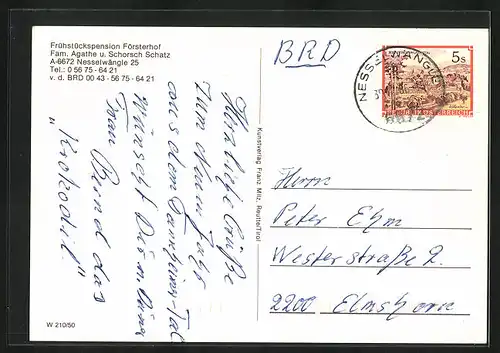 Frühstückspension Försterhof
Fam. Agathe u. Schorsch Schatz
A-6672 Nesselwängle 25
Tel.: 0 56 75 - 64 21
v. d. BRD 00 43 - 56 75 - 64 21
BRD
5 s
NESSELWÄNGLE
REPUBLIK ÖSTERREICH
Herzliche Grüße
zum neuen Jahr
aus dem Tannheimer-Tal
wünscht Dir u. Deiner
Frau Bernd das
"Krokodil"
Kunstverlag Franz Milz, Reutte/Tirol
Herrn
Peter Ehm
Westerstraße 2
2200 Elmshorn
W 210/50